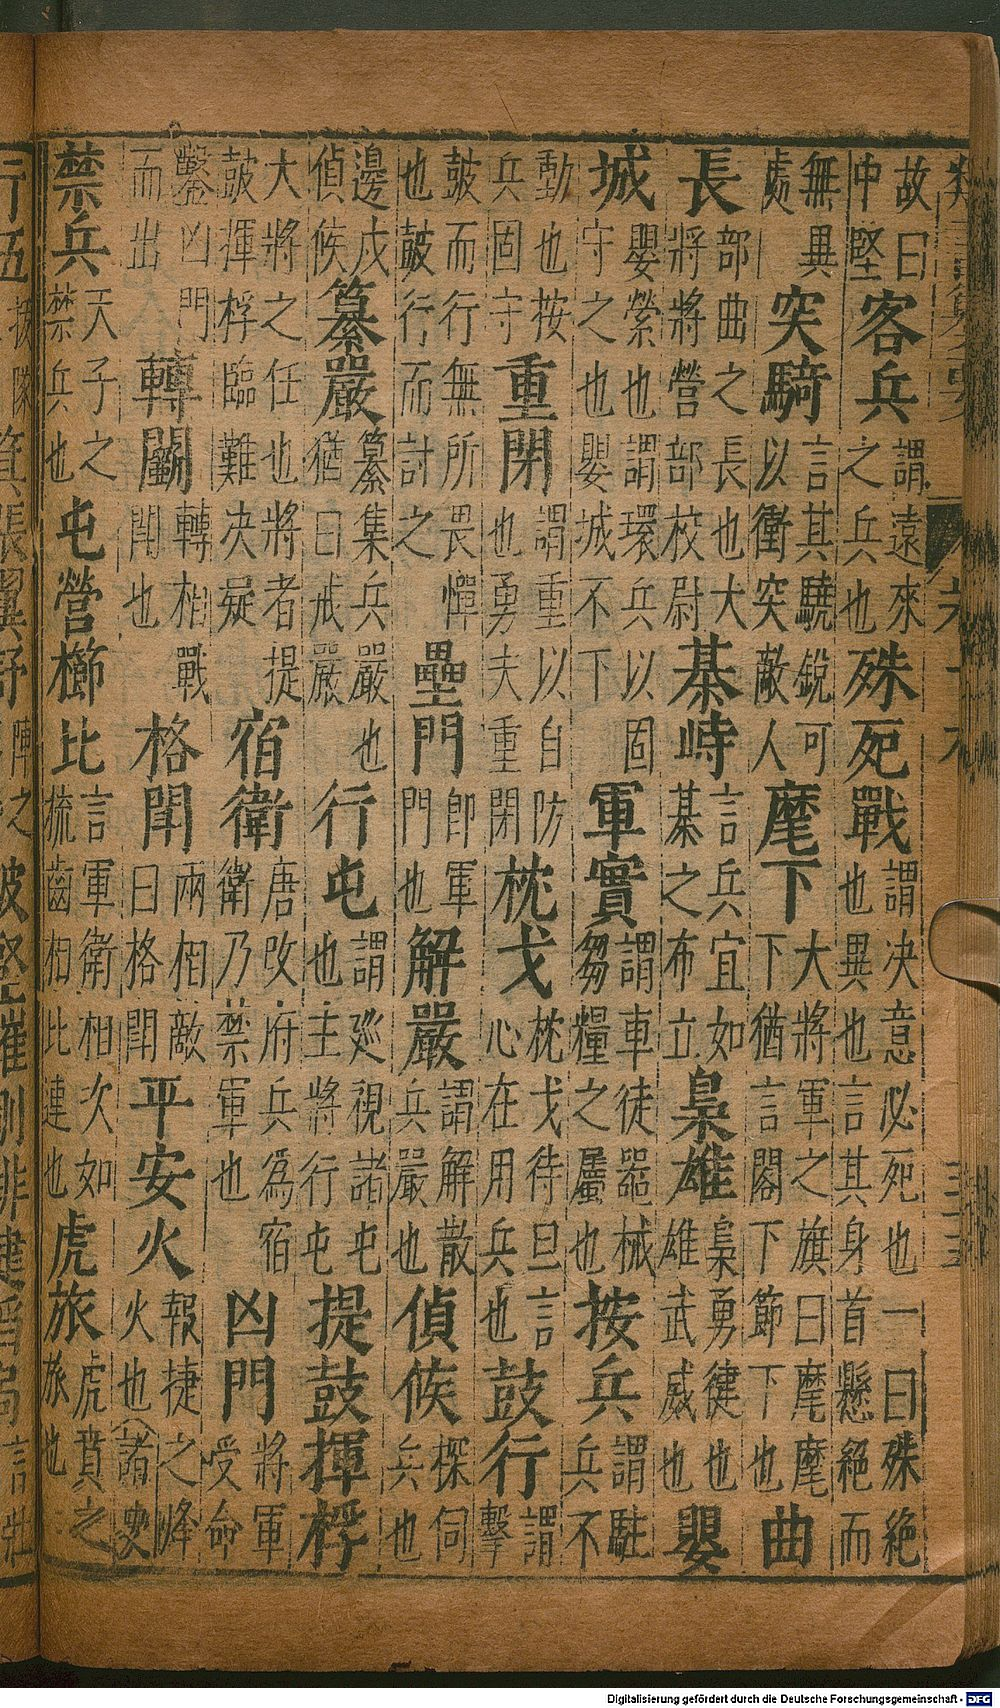 故曰中堅客兵謂遠來之兵也殊死戰謂决意必死也一曰殊絶也異也言其身首懸絕而
無異處｜突騎言其驍銳可以衝突敵人麾下大將軍之旗曰麾麾下猶言閣下節下也曲
長部曲之長也大將將營部校尉棊峙言兵宜如棊之布立梟雄梟勇健也雄武威也嬰
城嬰縈也謂環兵以固守之也嬰城不下軍實謂車徒器械芻糧之屬也按兵謂駐兵不
動也按兵固守重閉謂重以自防也勇夫重閉枕戈枕戈待旦言心在用兵也鼓行謂擊
鼓而行無所畏憚也鼓行而討之壘門即軍門也解嚴謂解散兵嚴也偵候探伺兵也
邊戍偵候纂嚴纂集兵嚴也猶曰戒嚴行屯謂廵視諸屯也主將行屯提鼓揮桴
大將之任也將者提鼓揮桴臨難决疑宿衛唐改府兵爲宿衛乃禁軍也凶門將軍受命
鑿凶門而出轉鬭轉相戰鬭也格鬭兩相敵曰格鬭平安火報捷之烽火也諸史
禁兵天子之禁兵也屯營櫛比言軍衛相次如梳齒相比連也虎旅虎賁之旅也
Digitalisierung gefördert durch die Deutsche Forschungsgemeinschaft - DFG